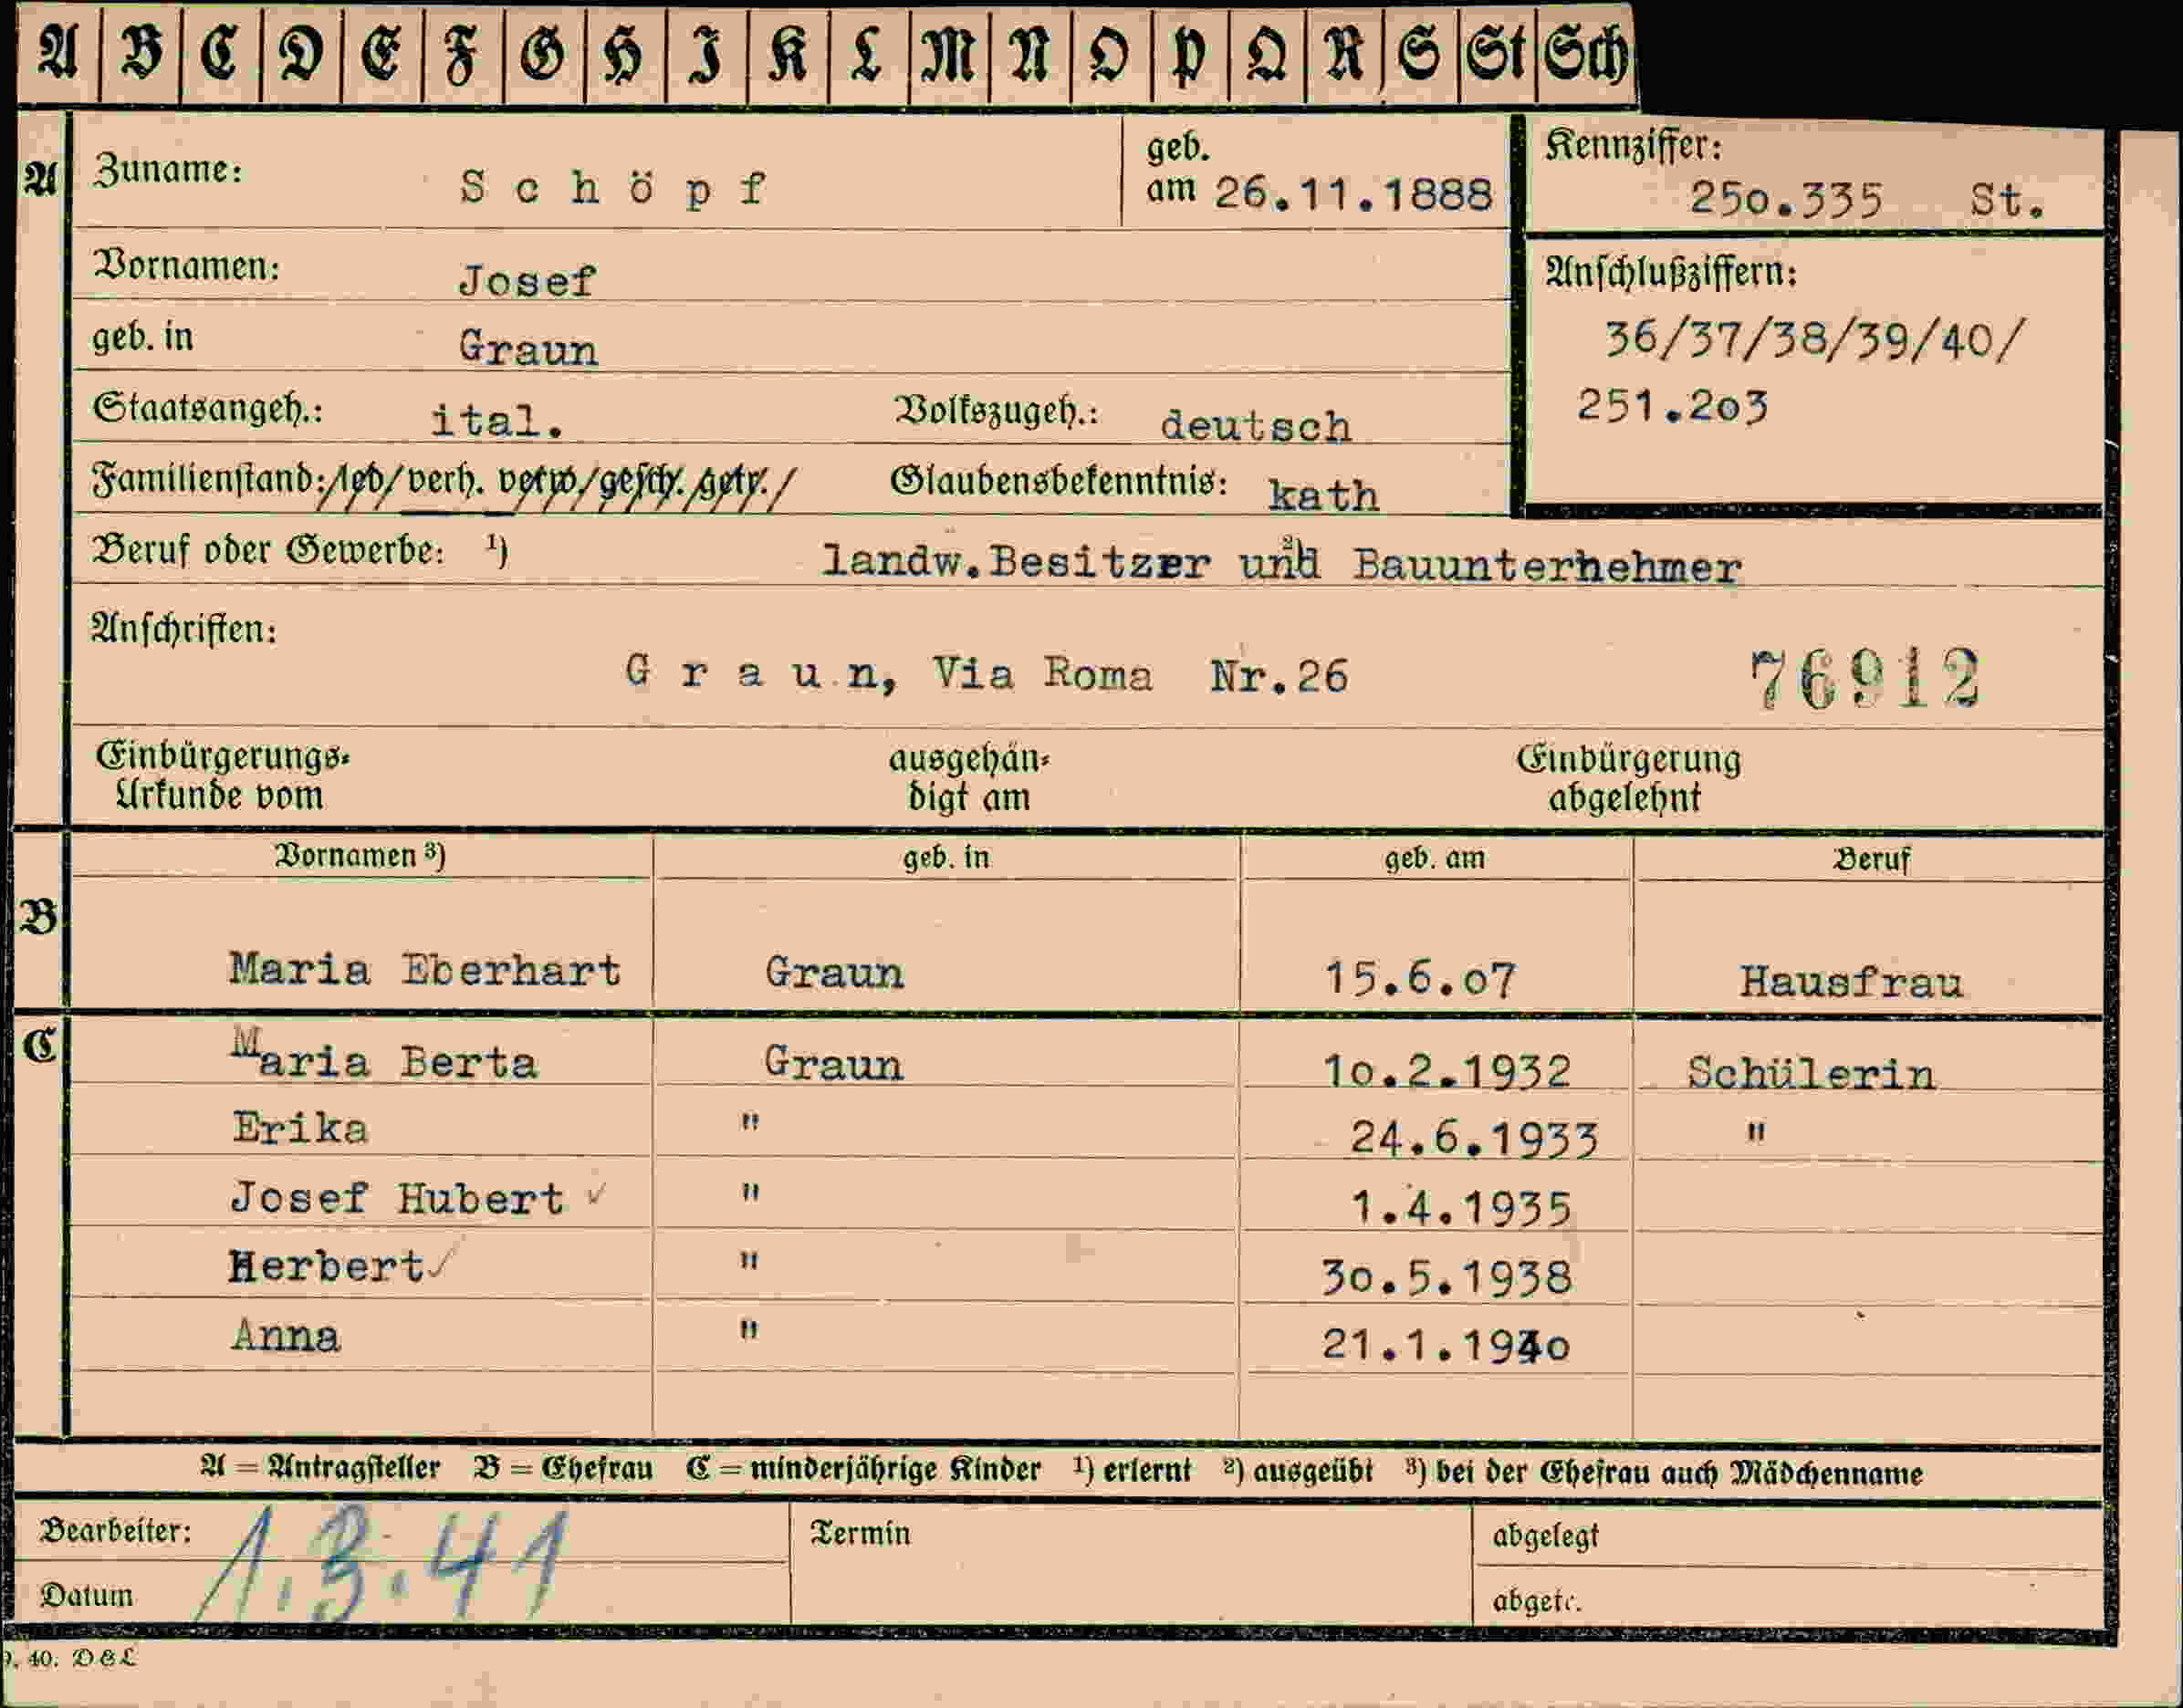 A B C D E F G H I K L M N O P Q R S St Sch
A Zuname: Schöpf geb. am 26.11.1888 Kennziffer: 250.335 St.
Vornamen: Josef Anschlußziffern:
geb. in Graun 36/37/38/39/40/
Staatsangeh.: ital. Volkszugeh.: deutsch 251.203
Familienstand: led/verh. verw./gesch. getr./ Glaubensbekenntnis: kath
Beruf oder Gewerbe: ¹) landw.Besitzer und ²) Bauunternehmer
Anschriften:
Graun, Via Roma Nr.26 76912
Einbürgerungs- ausgehän- Einbürgerung
Urkunde vom digt am abgelehnt
Vornamen ³) geb. in geb. am Beruf
B
Maria Eberhart Graun 15.6.07 Hausfrau
C Maria Berta Graun 10.2.1932 Schülerin
Erika " 24.6.1933 "
Josef Hubert ✓ " 1.4.1935
Herbert ✓ " 30.5.1938
Anna " 21.1.1940
A = Antragsteller B = Ehefrau C = minderjährige Kinder ¹) erlernt ²) ausgeübt ³) bei der Ehefrau auch Mädchenname
Bearbeiter: 1.3.41 Termin abgelegt
Datum abgetr.
40. DEL